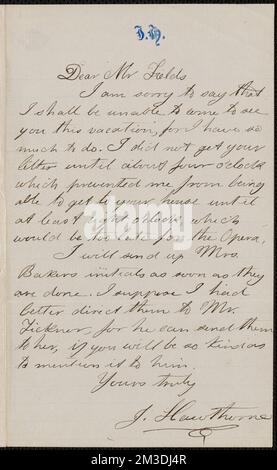 J.H.
Dear Mr Fields
I am sorry to say that
I shall be unable to come to see
you this vacation, for I have so
much to do. I did not get your
letter until about four o'clock
which prevented me from being
able to get to your house until
at least eight o'clock, which
would be too late for the Opera.
I will send up Mrs.
Bakers initials as soon as they
are done. I suppose I had
better direct them to Mr.
Ticknor, for he can send them
to her, if you will be so kind as
to mention it to him.
Yours truly
J. Hawthorne
alamy
alamy
Image ID: 2M3DJ4R
www.alamy.com